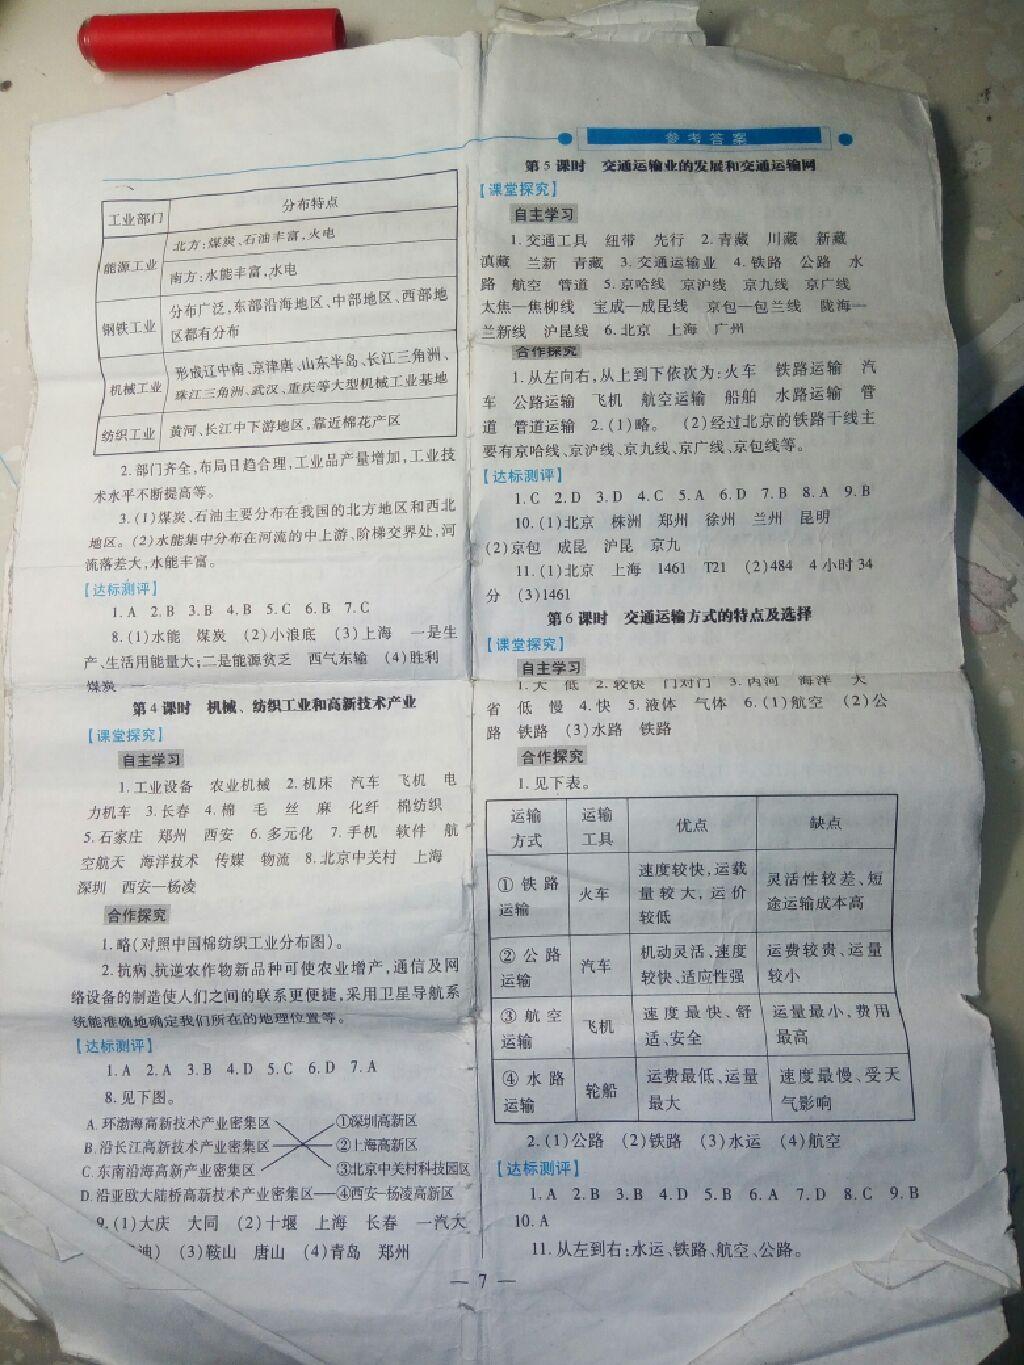 参考答案
工业部门 分布特点
能源工业 北方:煤炭、石油丰富,火电
南方:水能丰富,水电
钢铁工业 分布广泛,东部沿海地区、中部地区、西部地
区都有分布
机械工业 形成辽中南、京津唐、山东半岛、长江三角洲、
珠江三角洲、武汉、重庆等大型机械工业基地
纺织工业 黄河、长江中下游地区,靠近棉花产区
2.部门齐全,布局日趋合理,工业品产量增加,工业技
术水平不断提高等。
3.(1)煤炭、石油主要分布在我国的北方地区和西北
地区。(2)水能集中分布在河流的中上游、阶梯交界处,河
流落差大,水能丰富。
【达标测评】
1.A 2.B 3.B 4.B 5.C 6.B 7.C
8.(1)水能 煤炭 (2)小浪底 (3)上海 一是生
产、生活用能量大;二是能源贫乏 西气东输 (4)胜利
煤炭
第4课时 机械、纺织工业和高新技术产业
【课堂探究】
自主学习
1.工业设备 农业机械 2.机床 汽车 飞机 电
力机车 3.长春 4.棉 毛 丝 麻 化纤 棉纺织
5.石家庄 郑州 西安 6.多元化 7.手机 软件 航
空航天 海洋技术 传媒 物流 8.北京中关村 上海
深圳 西安—杨凌
合作探究
1.略(对照中国棉纺织工业分布图)。
2.抗病、抗逆农作物新品种可使农业增产,通信及网
络设备的制造使人们之间的联系更便捷,采用卫星导航系
统能准确地确定我们所在的地理位置等。
【达标测评】
1.A 2.A 3.B 4.D 5.C 6.D 7.A
8.见下图。
A.环渤海高新技术产业密集区 ①深圳高新区
B.沿长江高新技术产业密集区 ②上海高新区
C.东南沿海高新产业密集区 ③北京中关村科技园区
D.沿亚欧大陆桥高新技术产业密集区 ④西安—杨凌高新区
9.(1)大庆 大同 (2)十堰 上海 长春 一汽大
油) (3)鞍山 唐山 (4)青岛 郑州
第5课时 交通运输业的发展和交通运输网
【课堂探究】
自主学习
1.交通工具 纽带 先行 2.青藏 川藏 新藏
滇藏 兰新 青藏 3.交通运输业 4.铁路 公路 水
路 航空 管道 5.京哈线 京沪线 京九线 京广线
太焦—焦柳线 宝成—成昆线 京包—包兰线 陇海—
兰新线 沪昆线 6.北京 上海 广州
合作探究
1.从左向右,从上到下依次为:火车 铁路运输 汽
车 公路运输 飞机 航空运输 船舶 水路运输 管
道 管道运输 2.(1)略。 (2)经过北京的铁路干线主
要有京哈线、京沪线、京九线、京广线、京包线等。
【达标测评】
1.C 2.D 3.D 4.C 5.A 6.D 7.B 8.A 9.B
10.(1)北京 株洲 郑州 徐州 兰州 昆明
(2)京包 成昆 沪昆 京九
11.(1)北京 上海 1461 T21 (2)484 4小时34
分 (3)1461
第6课时 交通运输方式的特点及选择
【课堂探究】
自主学习
1.大 低 2.较快 门对门 3.内河 海洋 大
省 低 慢 4.快 5.液体 气体 6.(1)航空 (2)公
路 铁路 (3)水路 铁路
合作探究
1.见下表。
运输方式 运输工具 优点 缺点
①铁路运输 火车 速度较快,运载量较大,运价较低 灵活性较差、短途运输成本高
②公路运输 汽车 机动灵活,速度较快、适应性强 运费较贵、运量较小
③航空运输 飞机 速度最快、舒适、安全 运量最小、费用最高
④水路运输 轮船 运费最低、运量最大 速度最慢、受天气影响
2.(1)公路 (2)铁路 (3)水运 (4)航空
【达标测评】
1.A 2.B 3.B 4.D 5.B 6.A 7.D 8.C 9.B
10.A
11.从左到右:水运、铁路、航空、公路。
— 7 —